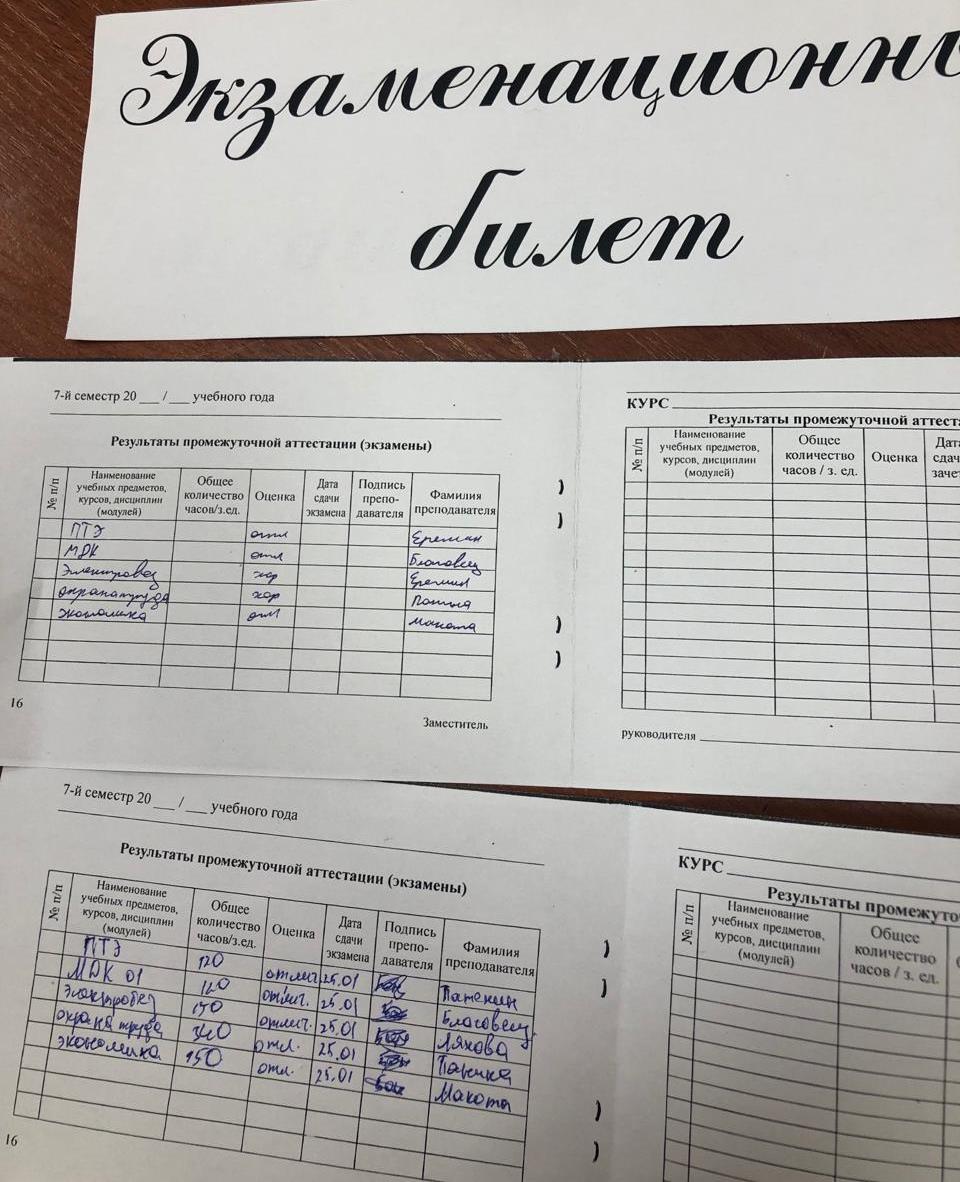 Экзаменационны
билет
7-й семестр 20 ___ / ___ учебного года
Результаты промежуточной аттестации (экзамены)
№ п/п Наименование учебных предметов, курсов, дисциплин (модулей) Общее количество часов/з.ед. Оценка Дата сдачи экзамена Подпись препо-давателя Фамилия преподавателя
ПТЭ отл Еремин
МДК отл Благовещ
Электробез хор Еремин
охрана труда хор
экономика отл Макота
16
Заместитель
КУРС
Результаты промежуточной аттеста
№ п/п Наименование учебных предметов, курсов, дисциплин (модулей) Общее количество часов / з. ед. Оценка Дат сдач заче
руководителя
7-й семестр 20 ___ / ___ учебного года
Результаты промежуточной аттестации (экзамены)
№ п/п Наименование учебных предметов, курсов, дисциплин (модулей) Общее количество часов/з.ед. Оценка Дата сдачи экзамена Подпись препо-давателя Фамилия преподавателя
ПТЭ 120 отлич. 25.01
МДК 01 120 отлич. 25.01 Благовещ
электробез 150 отлич. 25.01 Ляхова
охрана труда 340 отл. 25.01
экономика 150 отл. 25.01 Макота
16
КУРС
Результаты промежуто
№ п/п Наименование учебных предметов, курсов, дисциплин (модулей) Общее количество часов / з. ед.